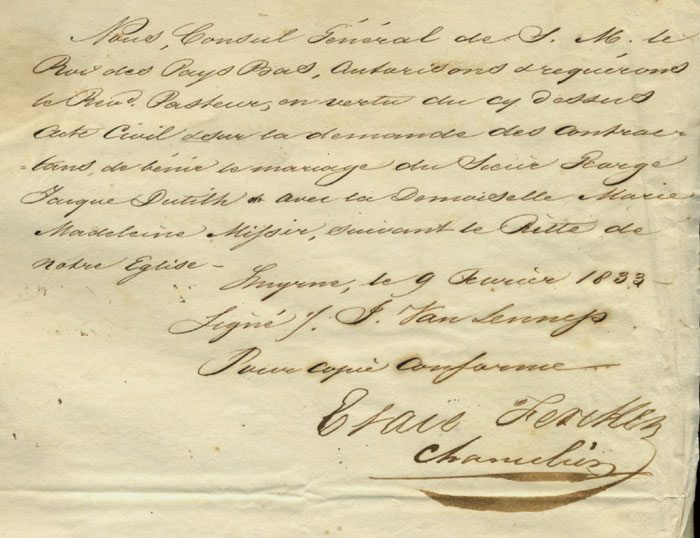 Nous, Consul Général de S. M. le
Roi des Pays Bas, Autorisons & requérons
le Revd. Pasteur, en vertu du cy dessus
Acte Civil & sur la demande des Contrac-
=tans, de bénir le mariage du Sieur George
Jacque Dutilh avec la Demoiselle Marie
Madeleine Missir, suivant le Ritte de
notre Eglise -
Smyrne, le 9 Fevrier 1833 -
Signé /. J. Van Lennep
Pour copie Conforme
Chancelier